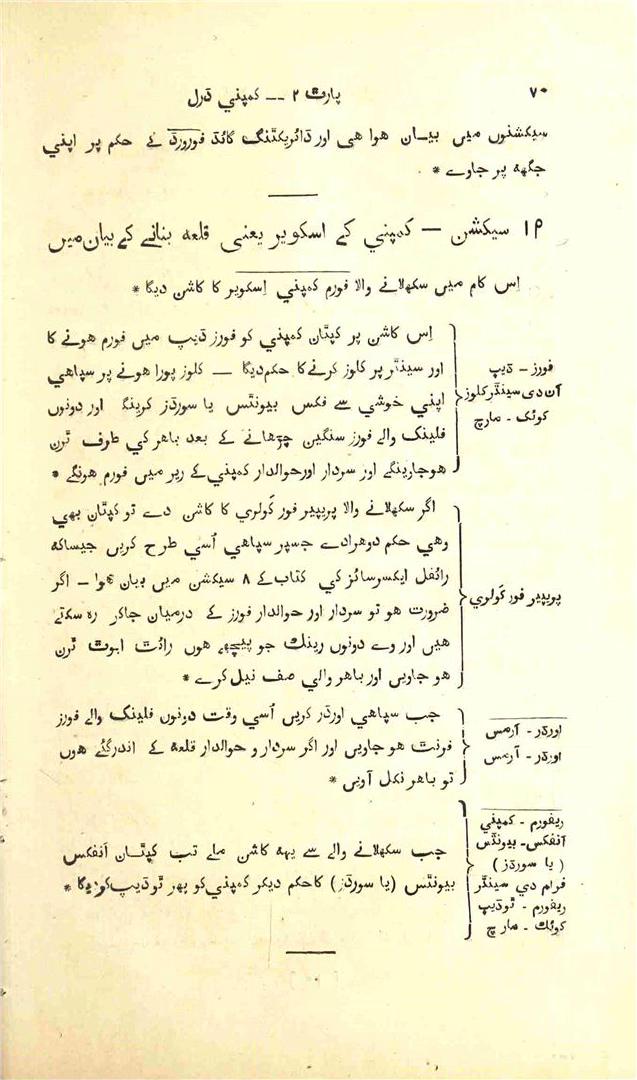 ۷۰
پارٹ ۲ — کمپني ڈرل
سیکشنوں میں بیان هوا هی اور ڈائریکٹنگ گائڈ فورورڈ کے حکم پر اپني
جگهه پر جاوے *
۱۹ سیکشن — کمپني کے اسکویر یعني قلعه بنانے کے بیان میں
اِس کام میں سکهلانے والا فورم کمپني اِسکویر کا کاشن دیگا *
فورز - ڈیپ
آن دی سینٹر کلوز
کوئک - مارچ
اِس کاشن پر کپتان کمپني کو فورز ڈیپ میں فورم هونے کا
اور سینٹر پر کلوز کرنے کا حکم دیگا — کلوز پورا هونے پر سپاهي
اپني خوشي سے فکس بیونٹس یا سورڈز کرینگا اور دونوں
فلینک والے فورز سنگین چڑهانے کے بعد باهر کي طرف ٹرن
هوجارینگے اور سردار اور حوالدار کمپني کے ریر میں فورم هونگے *
پریپیر فور کولري
اگر سکهلانے والا پریپیر فور کولري کا کاشن دے تو کپتان بهي
وهي حکم دوهرادے جسپر سپاهي اُسي طرح کریں جیساکه
رائفل ایکسرسائز کي کتاب کے ۸ سیکشن میں بیان هوا — اگر
ضرورت هو تو سردار اور حوالدار فورز کے درمیان جاکر ره سکتے
هیں اور وے دونوں رینک جو پیچهے هوں رائٹ ابوٹ ٹرن
هو جاویں اور باهر والي صف نیل کرے *
اورڈر - آرمس
اورڈر - آرمس
جب سپاهي اورڈر کریں اُسي وقت دونوں فلینک والے فورز
فرنٹ هو جاویں اور اگر سردار و حوالدار قلعه کے اندر گئے هوں
تو باهر نکل آویں *
ریفورم - کمپني
آنفکس - بیونٹس
( یا سورڈز )
فرام دي سینٹر
ریفورم - ٹو ڈیپ
کوئک - مارچ
جب سکهلانے والے سے یهه کاشن ملے تب کپتان آنفکس
بیونٹس (یا سورڈز) کا حکم دیکر کمپني کو پهر ٹو ڈیپ کریگا *